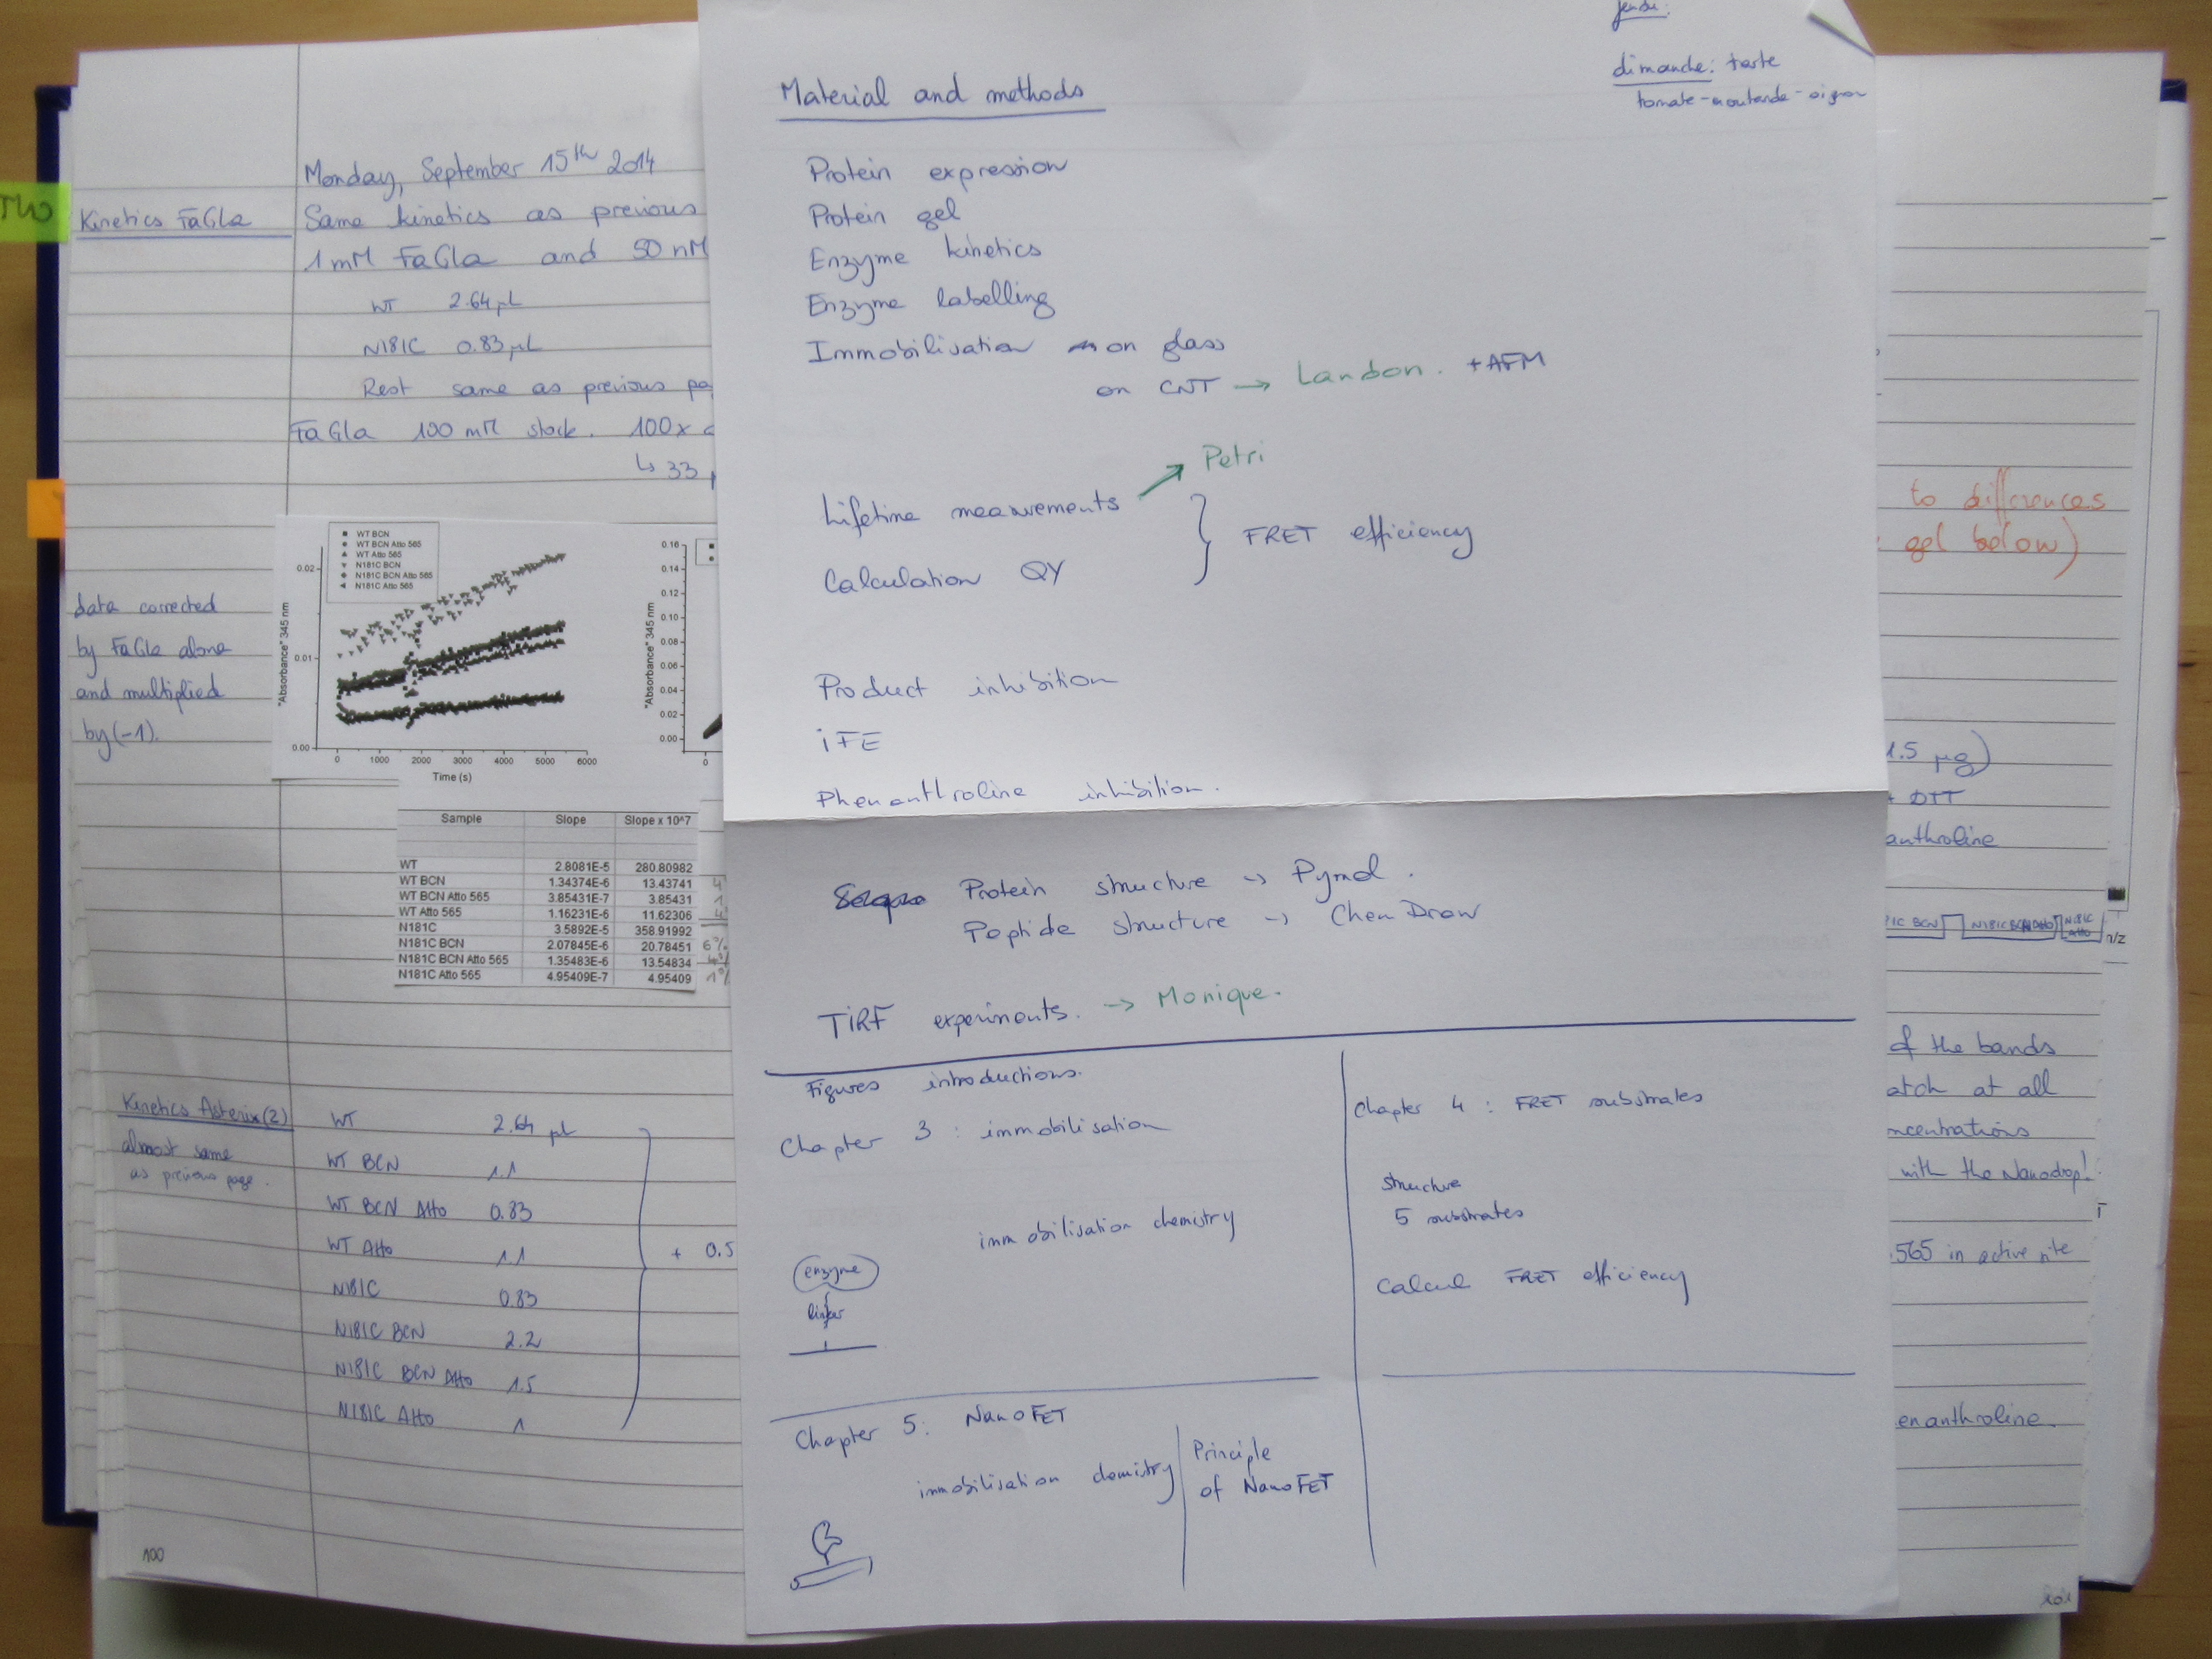 TWO
Kinetics FaGla
Monday, September 15th 2014
Same kinetics as previous
1 mM FaGla and 50 nM
WT 2.64 µL
N181C 0.83 µL
Rest same as previous pa
FaGla 100 mM stock. 100x
↳ 33
data corrected
by FaGla alone
and multiplied
by (-1).
WT BCN
WT BCN Atto 565
WT Atto 565
N181C BCN
N181C BCN Atto 565
N181C Atto 565
"Absorbance" 345 nm
0.02
0.01
0.00
0 1000 2000 3000 4000 5000 6000
Time (s)
"Absorbance" 345 nm
0.16
0.14
0.12
0.10
0.08
0.06
0.04
0.02
0.00
0
Sample Slope Slope x 10^7
WT 2.8081E-5 280.80982
WT BCN 1.34374E-6 13.43741
WT BCN Atto 565 3.85431E-7 3.85431
WT Atto 565 1.16231E-6 11.62306
N181C 3.5892E-5 358.91992
N181C BCN 2.07845E-6 20.78451 6%
N181C BCN Atto 565 1.35483E-6 13.54834
N181C Atto 565 4.95409E-7 4.95409 1%
Kinetics Asterix (2)
almost same
as previous page.
WT 2.64 µL
WT BCN 1.1
WT BCN Atto 0.83
WT Atto 1.1
N181C 0.83
N181C BCN 2.2
N181C BCN Atto 1.5
N181C Atto 1
+ 0.5
100
jeudi:
dimanche: tarte
tomate-moutarde-oignon
Material and methods
Protein expression
Protein gel
Enzyme kinetics
Enzyme labelling
Immobilisation on glass
on CNT → Landon. + AFM
Petri
Lifetime measurements
FRET efficiency
Calculation QY
Product inhibition
iFE
Phenanthroline inhibition.
Protein structure → Pymol.
Peptide structure → ChemDraw
TiRF experiments. → Monique.
Figures introductions.
Chapter 3 : immobilisation
immobilisation chemistry
enzyme
linker
Chapter 4 : FRET substrates
structure
5 substrates
Calcul FRET efficiency
Chapter 5: NanoFET
immobilisation chemistry
Principle
of NanoFET
to differences
gel below)
1.5 µg)
+ DTT
anthroline
1C BCN N181C BCN Atto N181C Atto
m/z
of the bands
atch at all
ncentrations
with the Nanodrop!
565 in active site
enanthroline.
101